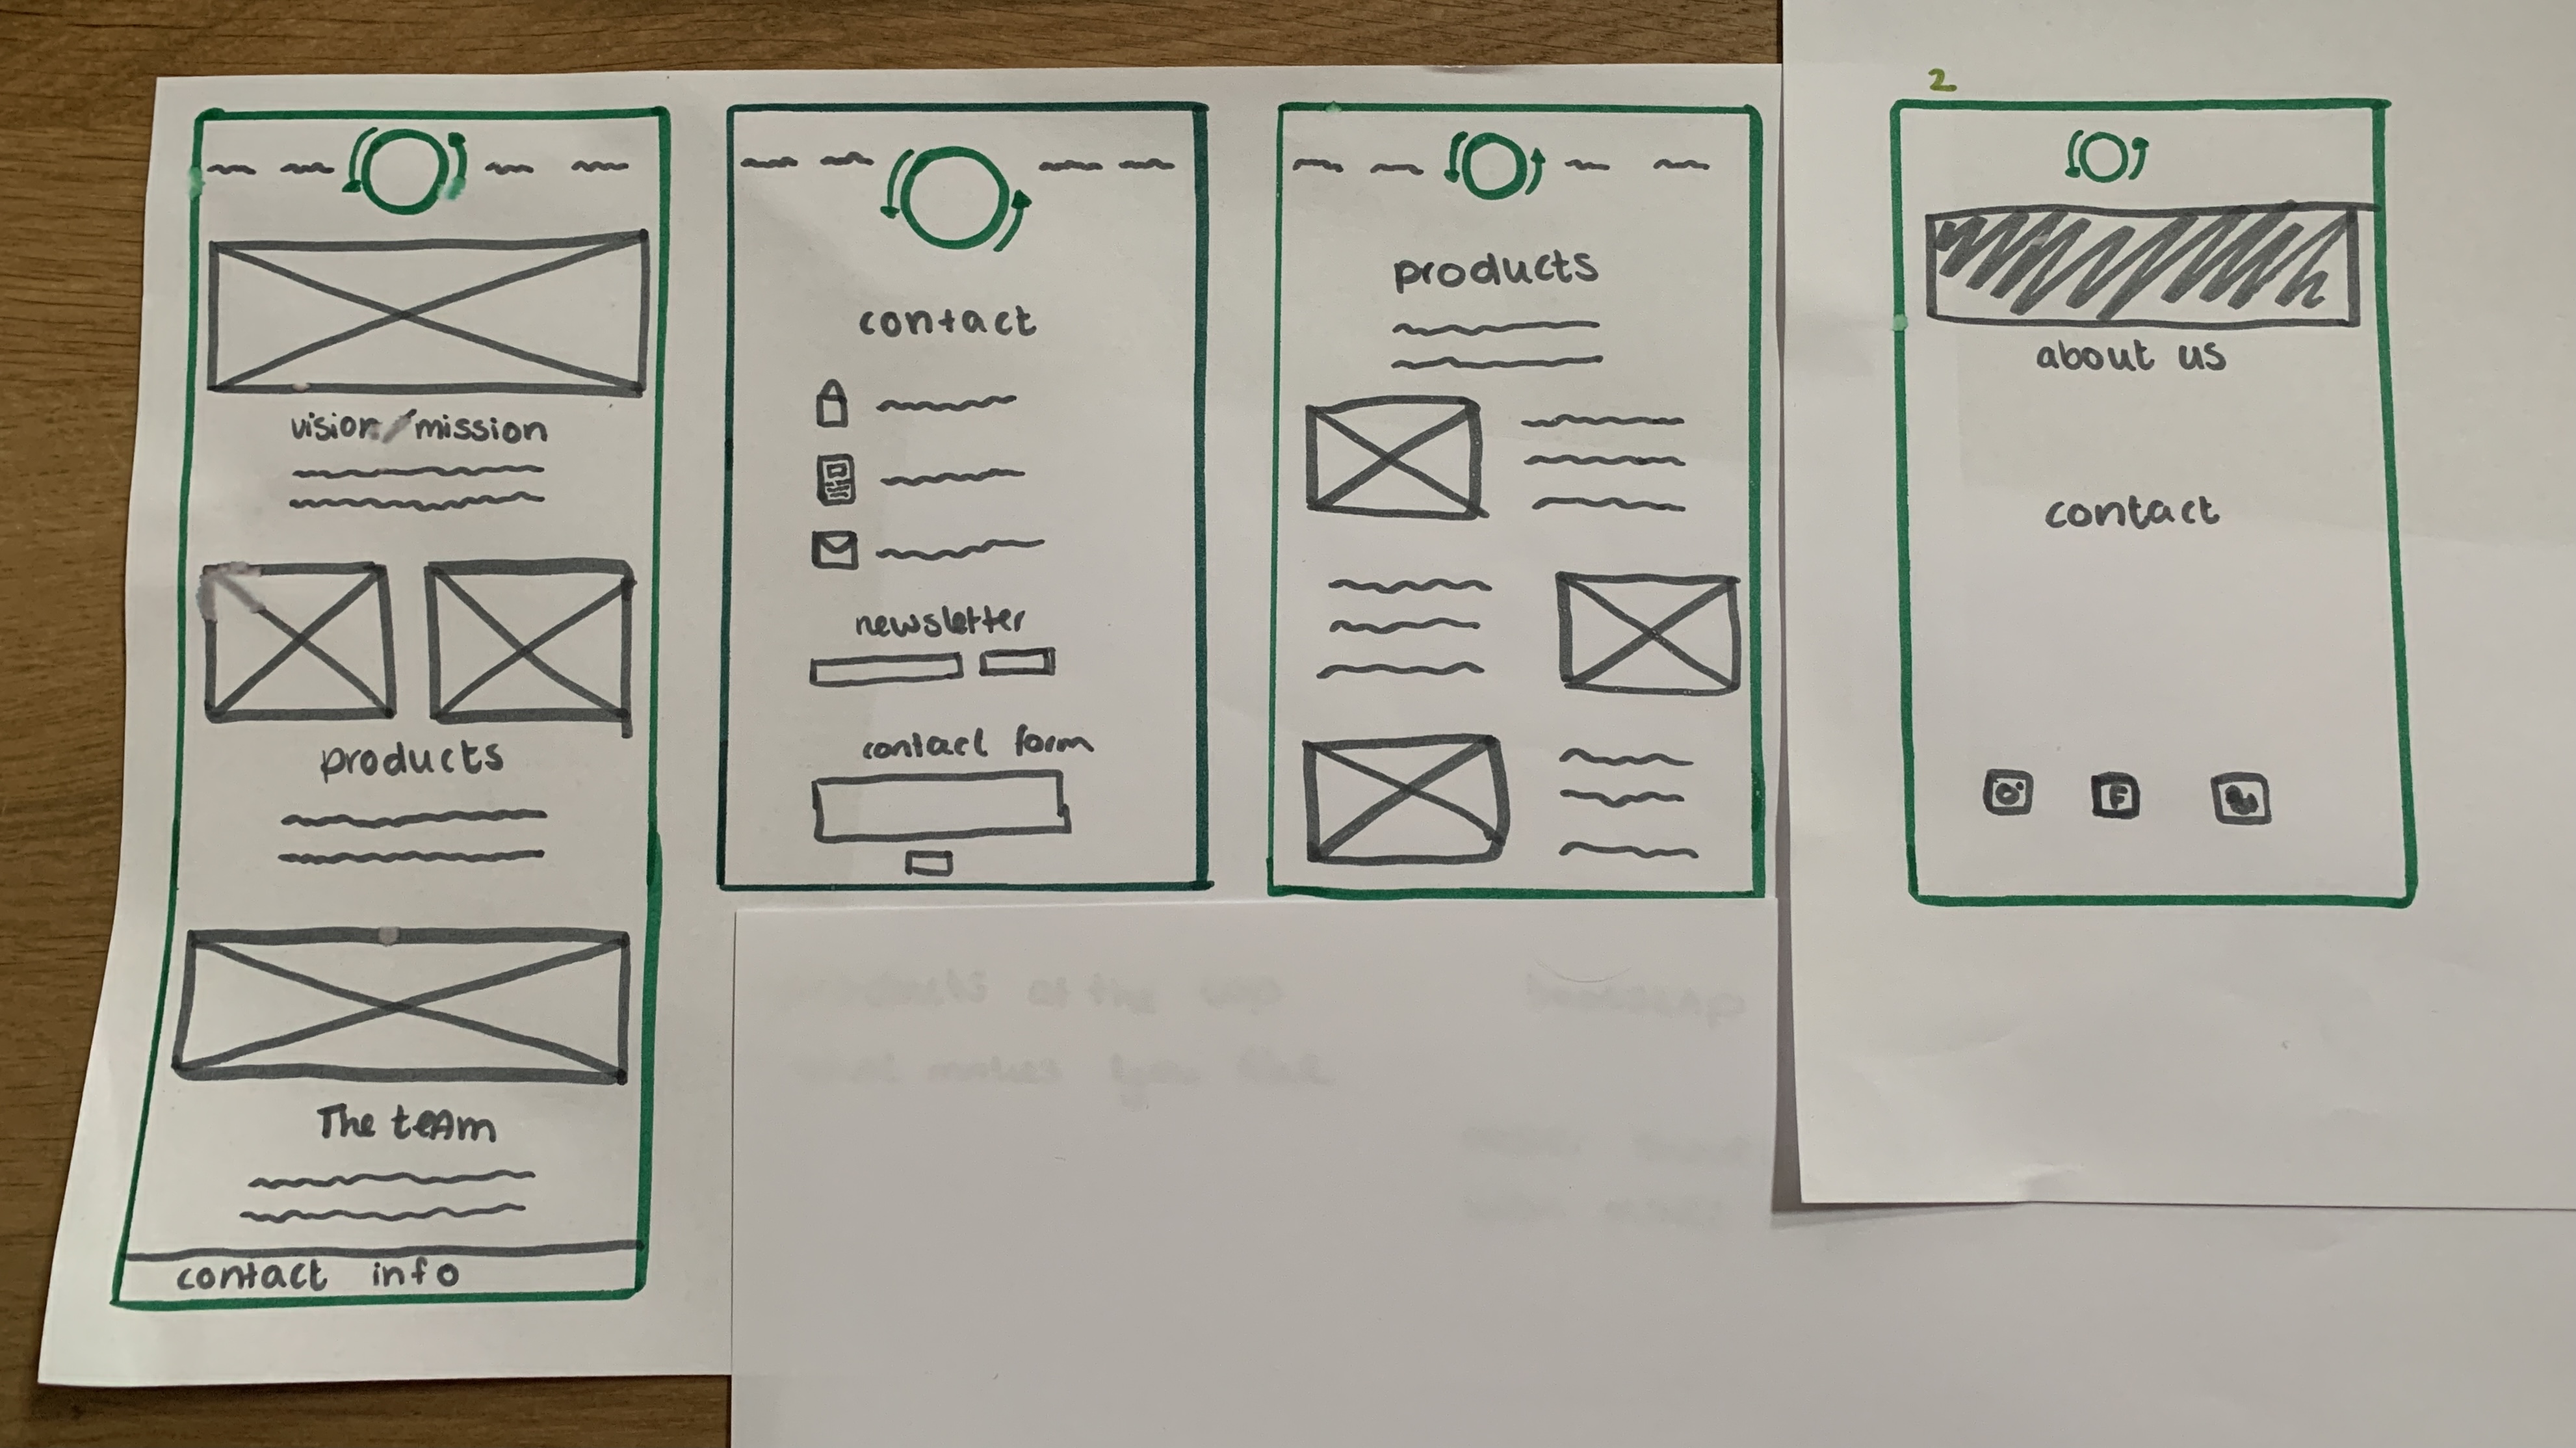 vision/mission
products
The teAm
contact info
contact
newsletter
contact form
products
2
about us
contact
F